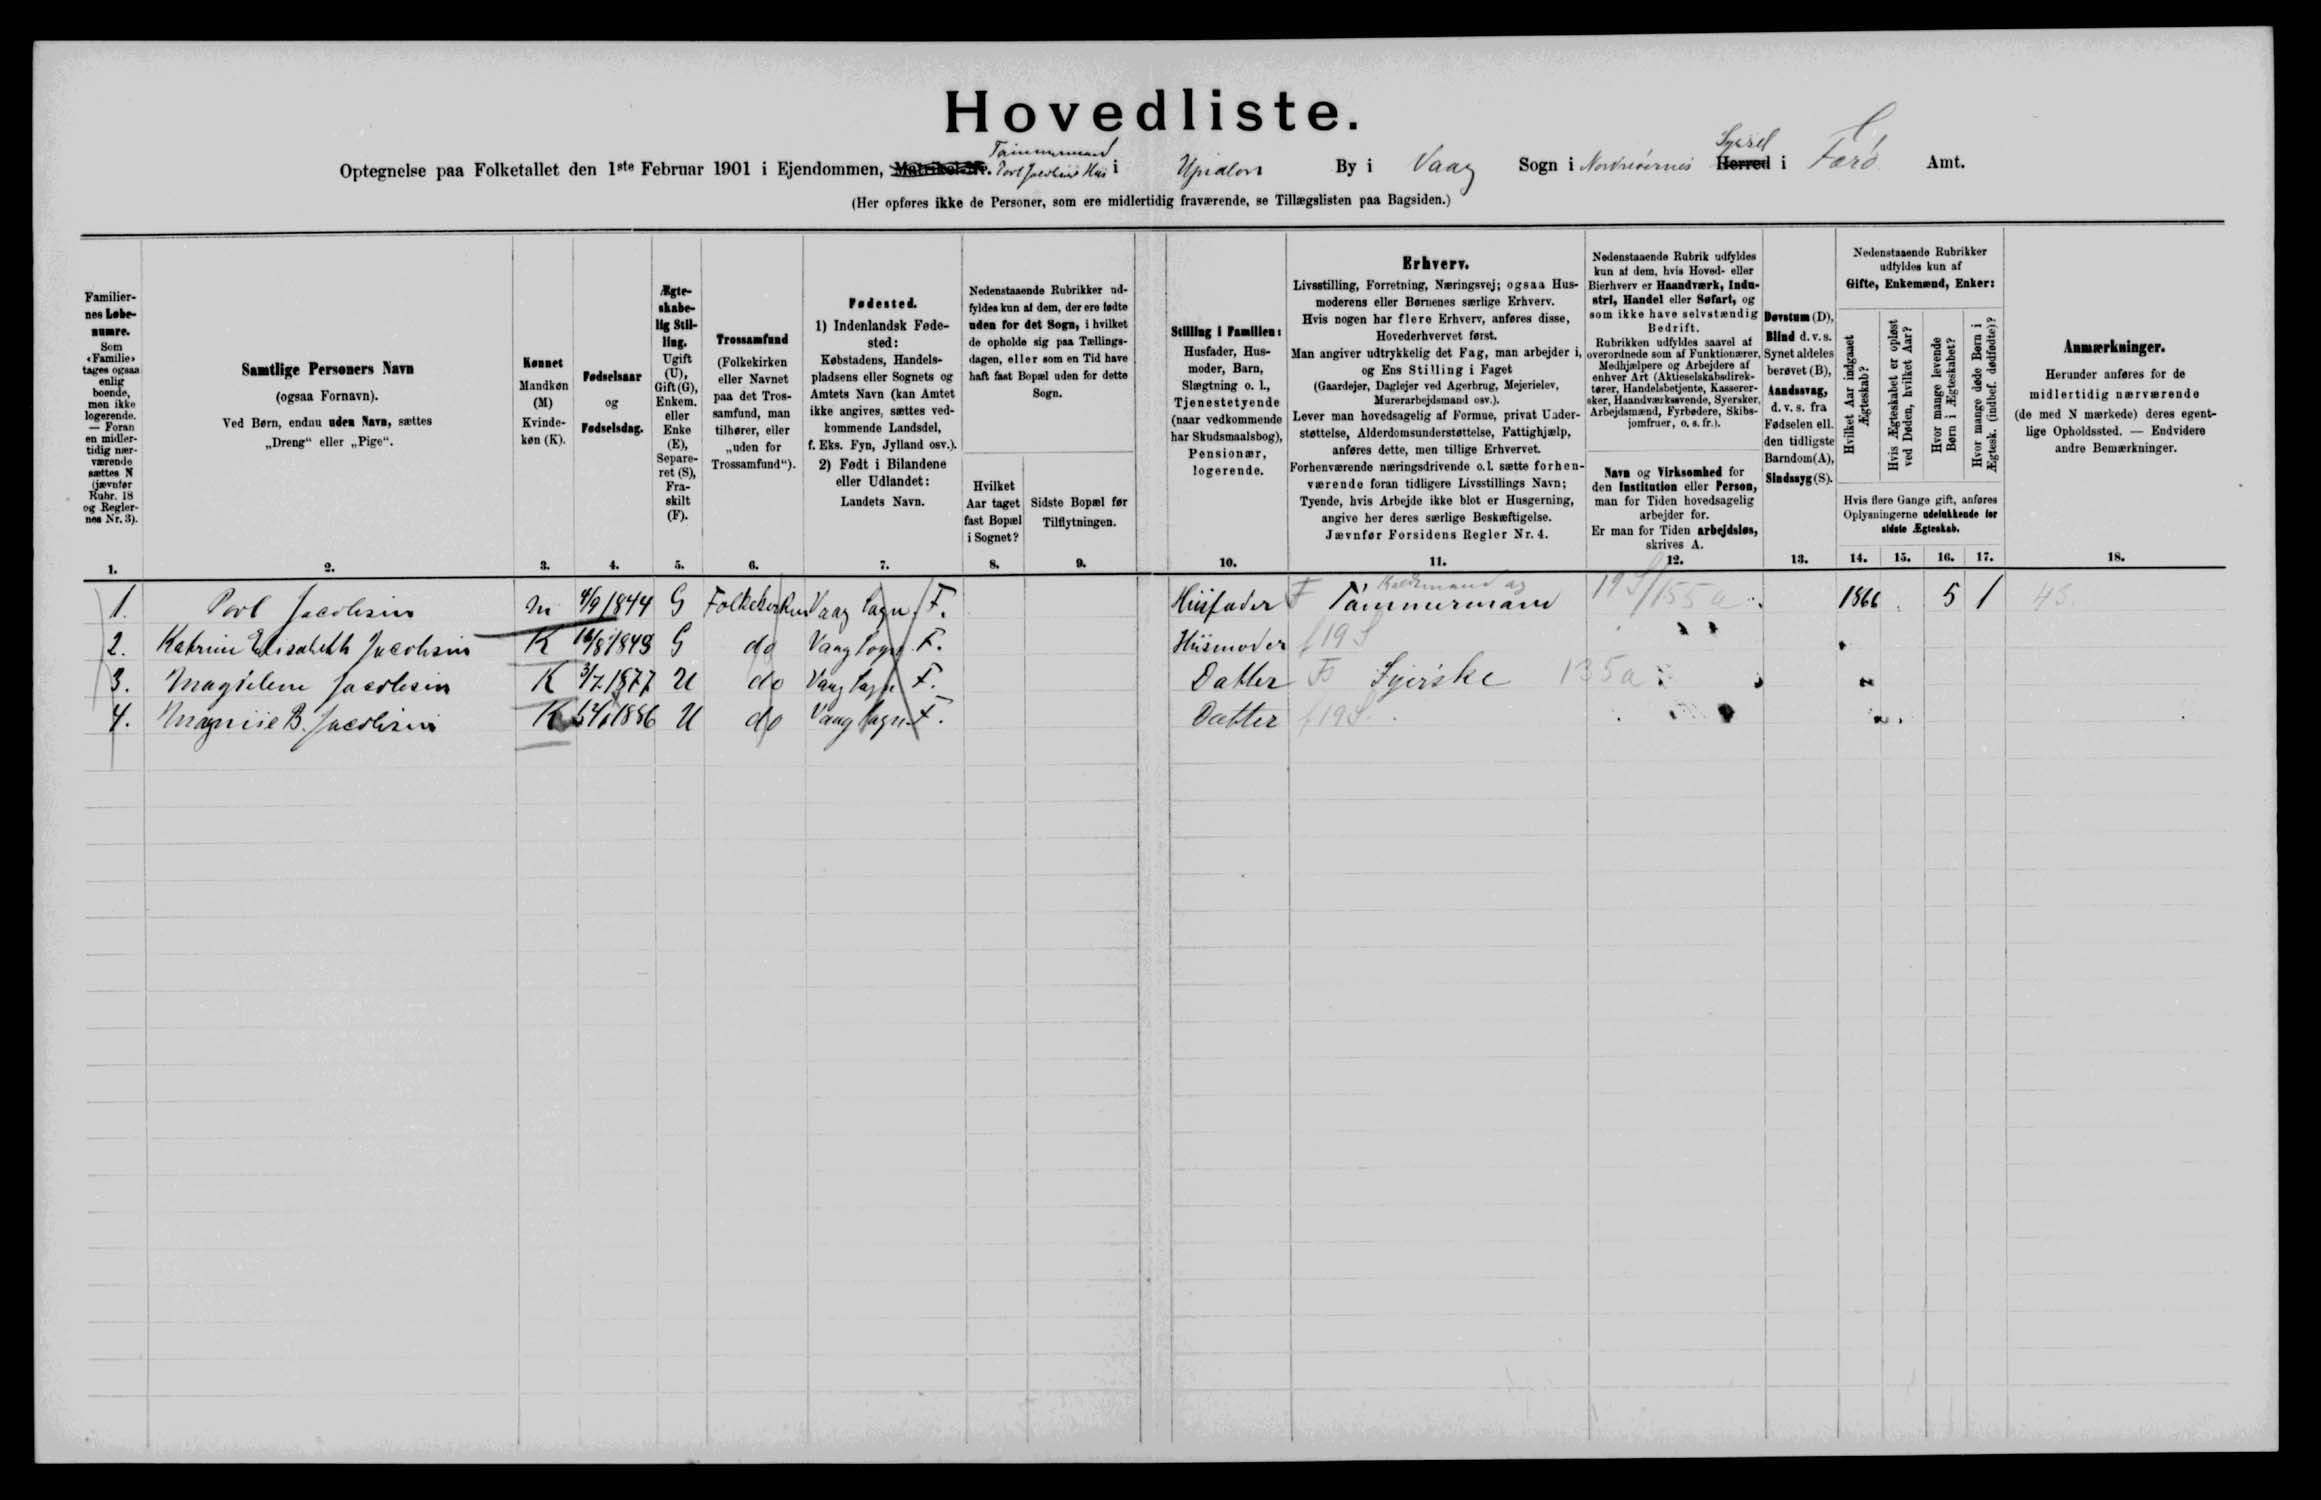 Hovedliste.
Tømmermand
Optegnelse paa Folketallet den 1ste Februar 1901 i Ejendommen, Matrikel-Nr. Povl Jacobsens Hus i By i Vaag Sogn i Norderøernes Herred Syssel i Færø Amt.
(Her opføres ikke de Personer, som ere midlertidig fraværende, se Tillægslisten paa Bagsiden.)
Familiernes Løbenumre.
Som «Familie» tages ogsaa enlig boende, men ikke logerende. — Foran en midlertidig nærværende sættes N (jævnfør Rubr. 18 og Reglernes Nr. 3).
1.
Samtlige Personers Navn
(ogsaa Fornavn).
Ved Børn, endnu uden Navn, sættes
„Dreng“ eller „Pige“.
2.
Kønnet
Mandkøn
(M)
Kvinde-
køn (K).
3.
Fødselsaar
og
Fødselsdag.
4.
Ægte-
skabe-
lig Stil-
ling.
Ugift
(U),
Gift (G),
Enkem.
eller
Enke
(E),
Separe-
ret (S),
Fra-
skilt
(F).
5.
Trossamfund
(Folkekirken
eller Navnet
paa det Tros-
samfund, man
tilhører, eller
„uden for
Trossamfund“).
6.
Fødested.
1) Indenlandsk Føde-
sted:
Købstadens, Handels-
pladsens eller Sognets og
Amtets Navn (kan Amtet
ikke angives, sættes ved-
kommende Landsdel,
f. Eks. Fyn, Jylland osv.).
2) Født i Bilandene
eller Udlandet:
Landets Navn.
7.
Nedenstaaende Rubrikker ud-
fyldes kun af dem, der ere fødte
uden for det Sogn, i hvilket
de opholde sig paa Tællings-
dagen, eller som en Tid have
haft fast Bopæl uden for dette
Sogn.
Hvilket
Aar taget
fast Bopæl
i Sognet?
8.
Sidste Bopæl før
Tilflytningen.
9.
Stilling i Familien:
Husfader, Hus-
moder, Barn,
Slægtning o. l.,
Tjenestetyende
(naar vedkommende
har Skudsmaalsbog),
Pensionær,
logerende.
10.
Erhverv.
Livsstilling, Forretning, Næringsvej; ogsaa Hus-
moderens eller Børnenes særlige Erhverv.
Hvis nogen har flere Erhverv, anføres disse,
Hovederhvervet først.
Man angiver udtrykkelig det Fag, man arbejder i,
og Ens Stilling i Faget
(Gaardejer, Daglejer ved Agerbrug, Mejerielev,
Murerarbejdsmand osv.).
Lever man hovedsagelig af Formue, privat Under-
støttelse, Alderdomsunderstøttelse, Fattighjælp,
anføres dette, men tillige Erhvervet.
Forhenværende næringsdrivende o. l. sætte forhen-
værende foran tidligere Livsstillings Navn;
Tyende, hvis Arbejde ikke blot er Husgerning,
angive her deres særlige Beskæftigelse.
Jævnfør Forsidens Regler Nr. 4.
11.
Nedenstaaende Rubrik udfyldes
kun af dem, hvis Hoved- eller
Bierhverv er Haandværk, Indu-
stri, Handel eller Søfart, og
som ikke have selvstændig
Bedrift.
Rubrikken udfyldes saavel af
overordnede som af Funktionærer,
Medhjælpere og Arbejdere af
enhver Art (Aktieselskabsdirek-
tører, Handelsbetjente, Kasserer-
sker, Haandværkssvende, Syersker,
Arbejdsmænd, Fyrbødere, Skibs-
jomfruer, o. s. fr.).
Navn og Virksomhed for
den Institution eller Person,
man for Tiden hovedsagelig
arbejder for.
Er man for Tiden arbejdsløs,
skrives A.
12.
Døvstum (D),
Blind d. v. s.
Synet aldeles
berøvet (B),
Aandssvag,
d. v. s. fra
Fødselen ell.
den tidligste
Barndom (A),
Sindssyg (S).
13.
Nedenstaaende Rubrikker
udfyldes kun af
Gifte, Enkemænd, Enker:
Hvilket Aar indgaaet Ægteskab?
Hvis Ægteskabet er opløst ved Døden, hvilket Aar?
Hvor mange levende Børn i Ægteskabet?
Hvor mange døde Børn i Ægtesk. (indbef. dødfødte)?
Hvis flere Gange gift, anføres
Oplysningerne udelukkende for
sidste Ægteskab.
14. 15. 16. 17.
Anmærkninger.
Herunder anføres for de
midlertidig nærværende
(de med N mærkede) deres egent-
lige Opholdssted. — Endvidere
andre Bemærkninger.
18.
1. Poul Jacobsen M 4/9 1844 G Folkekirken Vaag Sogn F. Husfader F Tømmermand 19 S/155a 1866 5 1 43.
2. Katrine Elisabeth Jacobsen K 16/8 1849 G do Vaag Sogn F. Husmoder f 19 S
3. Magdelene Jacobsen K 3/7 1877 U do Vaag Sogn F. Datter F Syerske 135a
4. B. Jacobsen K 1886 U do Vaag Sogn F. Datter f 19 S.